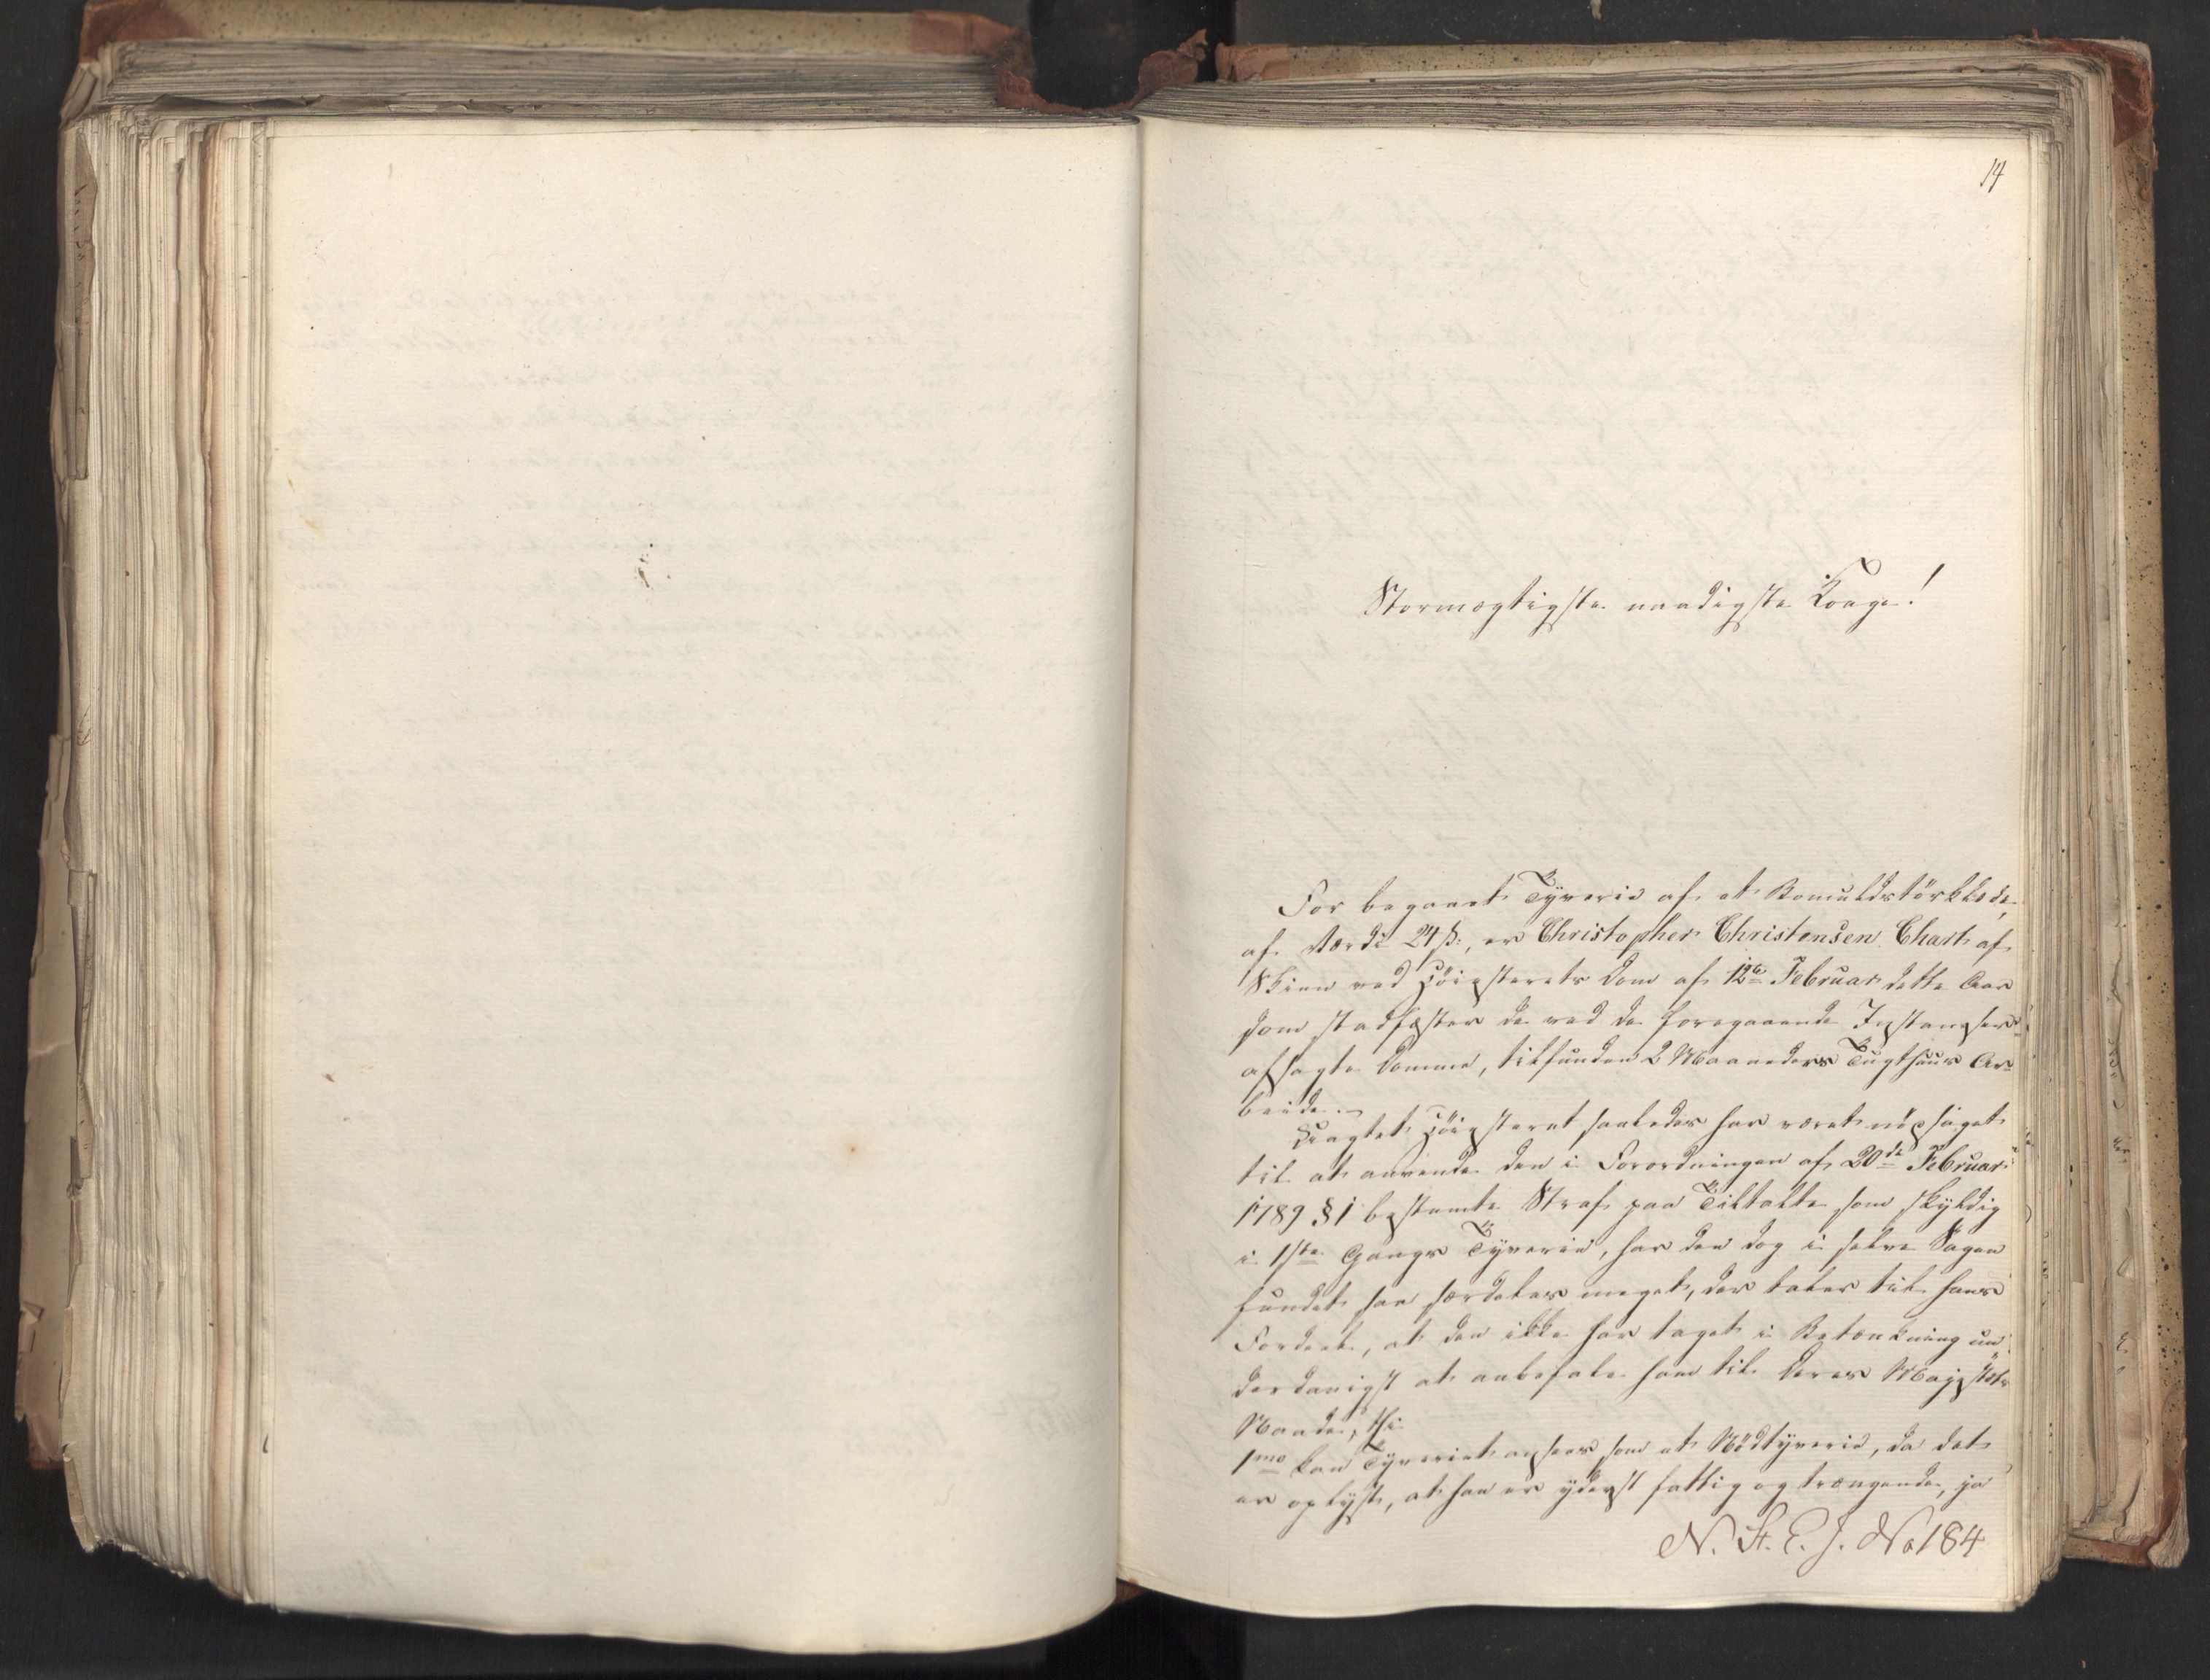 14
Stormægtigste naadigste Konge!
For begaaet Tyverie af et Bomuldstörklæde,
af Værdi 24 ß:, er Christopher Christensen Chart af
Skien ved Höiesterets Dom af 12te Februar dette Aar
som stadfæster de ved de foregaaende Instanser
afsagte Domme, tilfunden 2 Maaneders Tugthuus Ar-
beide.-
Uagtet Höiesteret saaledes har været nödsaget
til at anvende den i Forordningen af 20de Februar
1789 § 1 bestemte Straf paa Tiltalte som skyldig
i 1ste Gangs Tyverie, har den dog i selve Sagen
fundet saa særdeles meget, der taler til hans
Fordeel, at den ikke har taget i Betænkning un-
derdanigst at anbefale ham til Deres Majestæts
Naade, thi
1mo kan Tyveriet ansees som et Nödtyverie, da det
er oplyst, at han er yderst fattig og trængende, ja
N. St. E. J. No 184